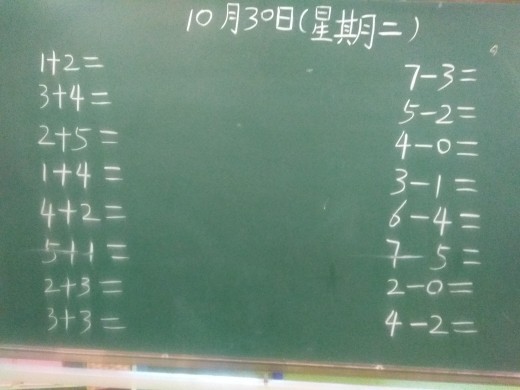 10月30日(星期二)
1+2=
3+4=
2+5=
1+4=
4+2=
5+1=
2+3=
3+3=
7-3=
5-2=
4-0=
3-1=
6-4=
7-5=
2-0=
4-2=